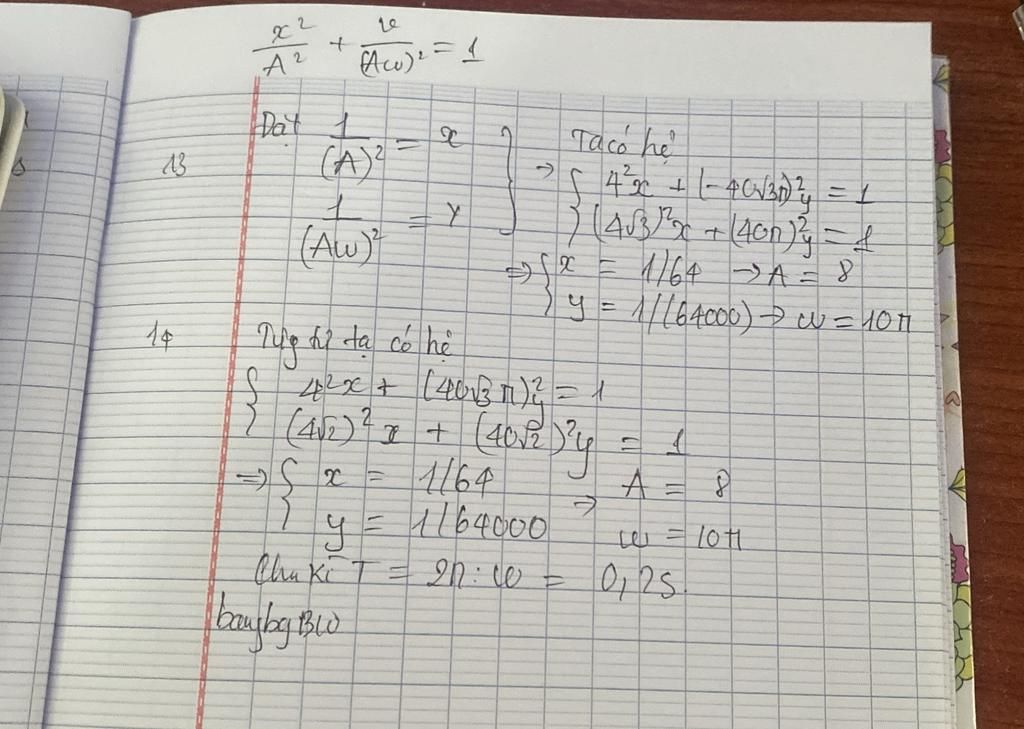 x²/A² + v/(Aω)² = 1
13 Đặt 1/(A)² = x
1/(Aω)² = Y
→ Ta có hệ
{ 4²x + (-40√3π)²y = 1
(4√3)²x + (40π)²y = 1
⇒ { x = 1/64 → A = 8
y = 1/(64000) → ω = 10π
14 ta có hệ
{ 4²x + (40√3π)²y = 1
(4√2)²x + (40√2)²y = 1
⇒ { x = 1/64 → A = 8
y = 1/64000 ω = 10π
Chu kì T = 2π : ω = 0,2s.